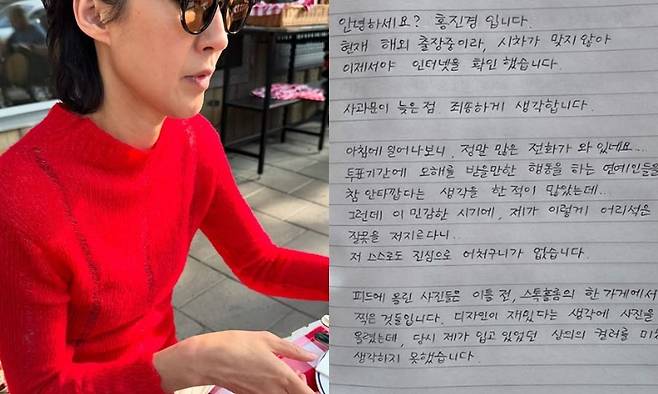 안녕하세요? 홍진경 입니다.
현재 해외 출장중이라, 시차가 맞지 않아
이제서야 인터넷을 확인 했습니다.
사과문이 늦은점 죄송하게 생각합니다.
아침에 일어나보니, 정말 많은 전화가 와 있네요...
투표기간에 오해를 받을만한 행동을 하는 연예인들을
참 안타깝다는 생각을 한 적이 많았는데..
그런데 이 민감한 시기에, 제가 이렇게 어리석은
잘못을 저지르다니..
저 스스로도 진심으로 어처구니가 없습니다.
피드에 올린 사진들은 이틀 전, 스톡홀름의 한 가게에서
찍은 것들입니다. 디자인이 재밌다는 생각에 사진을
올렸는데, 당시 제가 입고 있었던 상의의 컬러를 미처
생각하지 못했습니다.